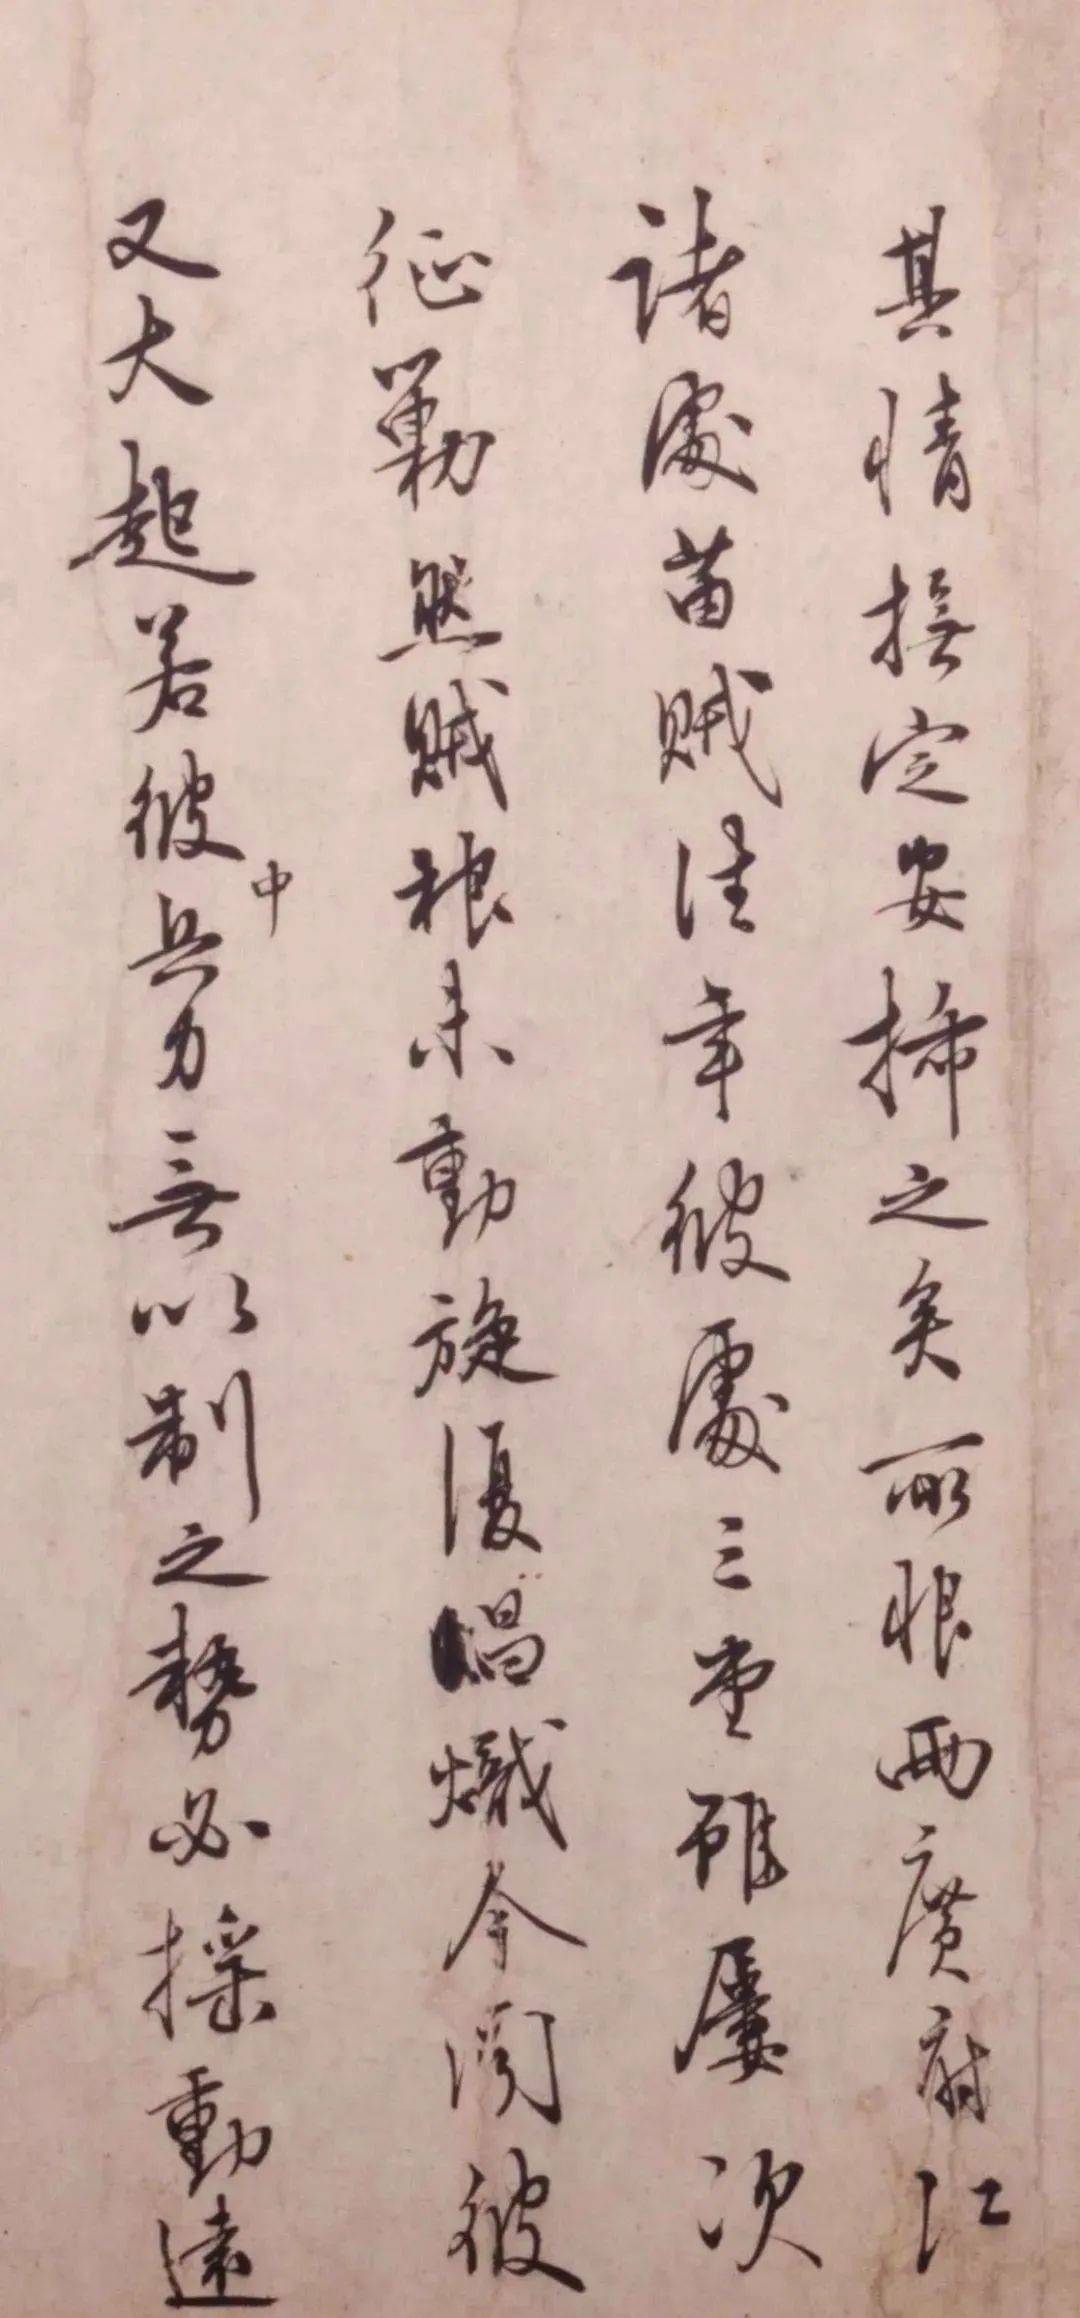 其情撫定安揷之矣所恨兩廣府江
諸處苗賊往年彼處三堂雖屢次
征勦然賊根未動旋復倡熾今聞彼
又大起若彼中兵力無以制之勢必搖動遠